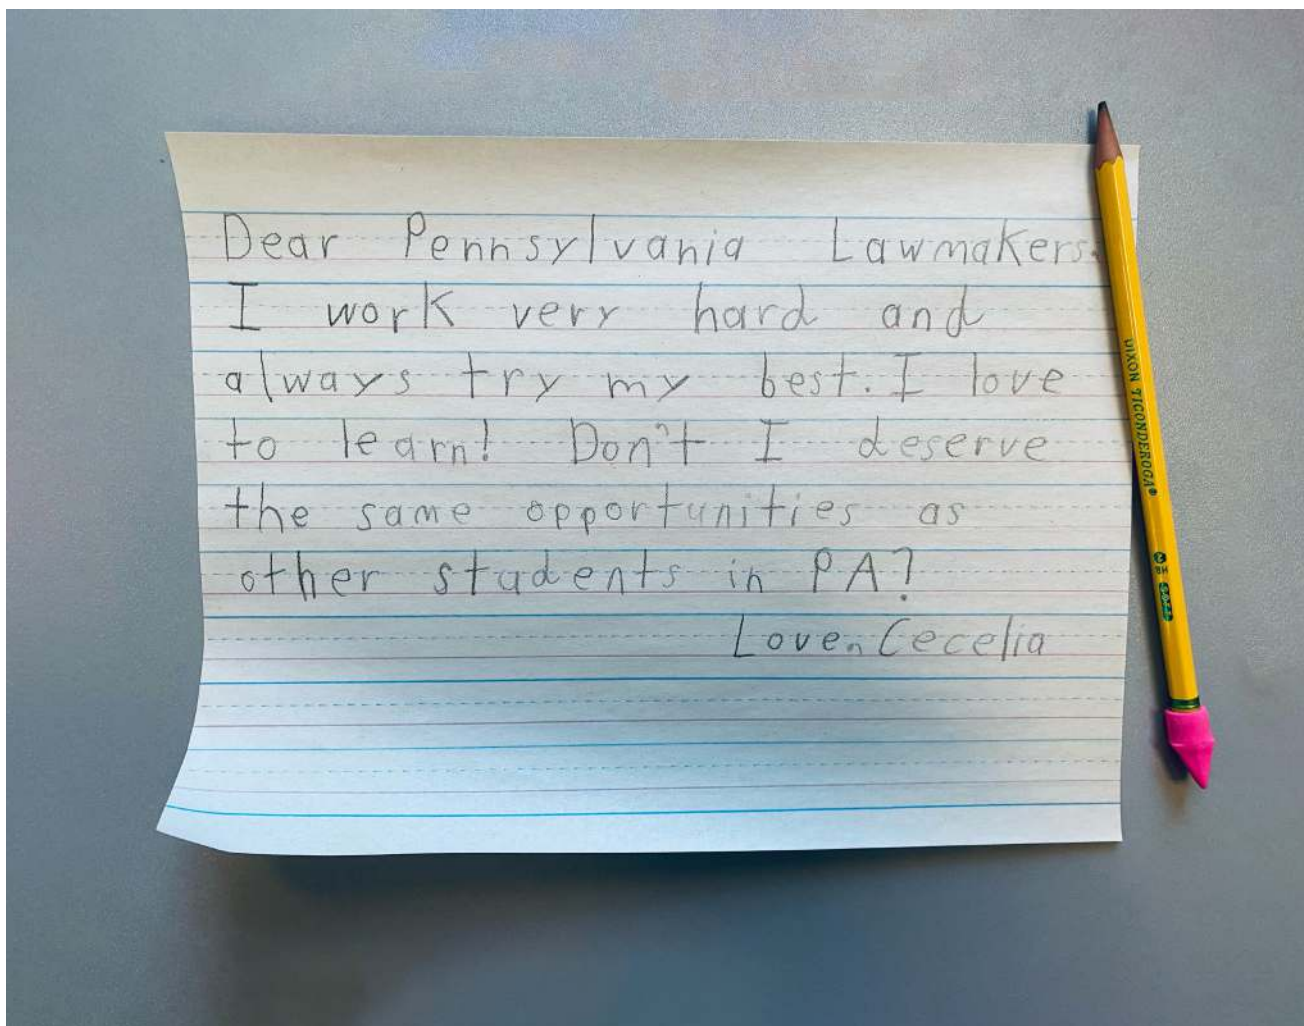 Dear Pennsylvania Lawmakers,
I work very hard and
always try my best. I love
to learn! Don't I deserve
the same opportunities as
other students in PA?
Love, Cecelia
DIXON TICONDEROGA®